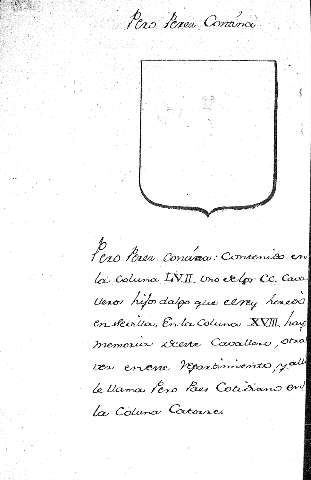 Pero Perez Conánza
Pero Perez Conánza: Contenido en
la Coluna LVII. Uno de los CC. Cava
lleros hijos dalgo que el rey heredó
en Sevilla. En la Coluna XXIII. hay
memoria de este Cavallero, otra
vez en este repartimiento, y alli
le llama Pero Paes Cotidiano en
la Coluna Catorze